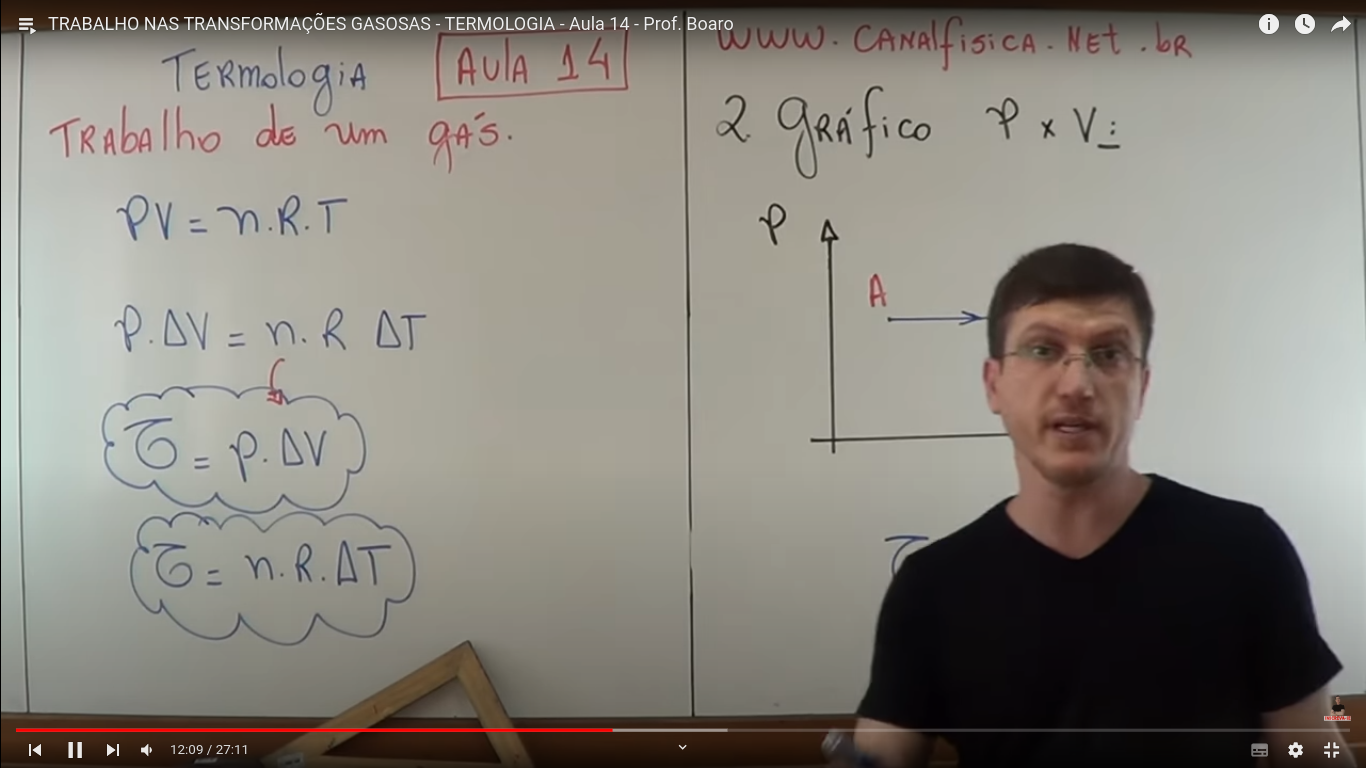 TRABALHO NAS TRANSFORMAÇÕES GASOSAS - TERMOLOGIA - Aula 14 - Prof. Boaro
Termologia
AULA 14
TRAbAlho de um gás.
PV = n.R.T
P.ΔV = n.R ΔT
τ = p.ΔV
τ = n.R.ΔT
WWW.CANAlfísica.Net.bR
2 gráfico P x V:
P
A
τ
12:09 / 27:11